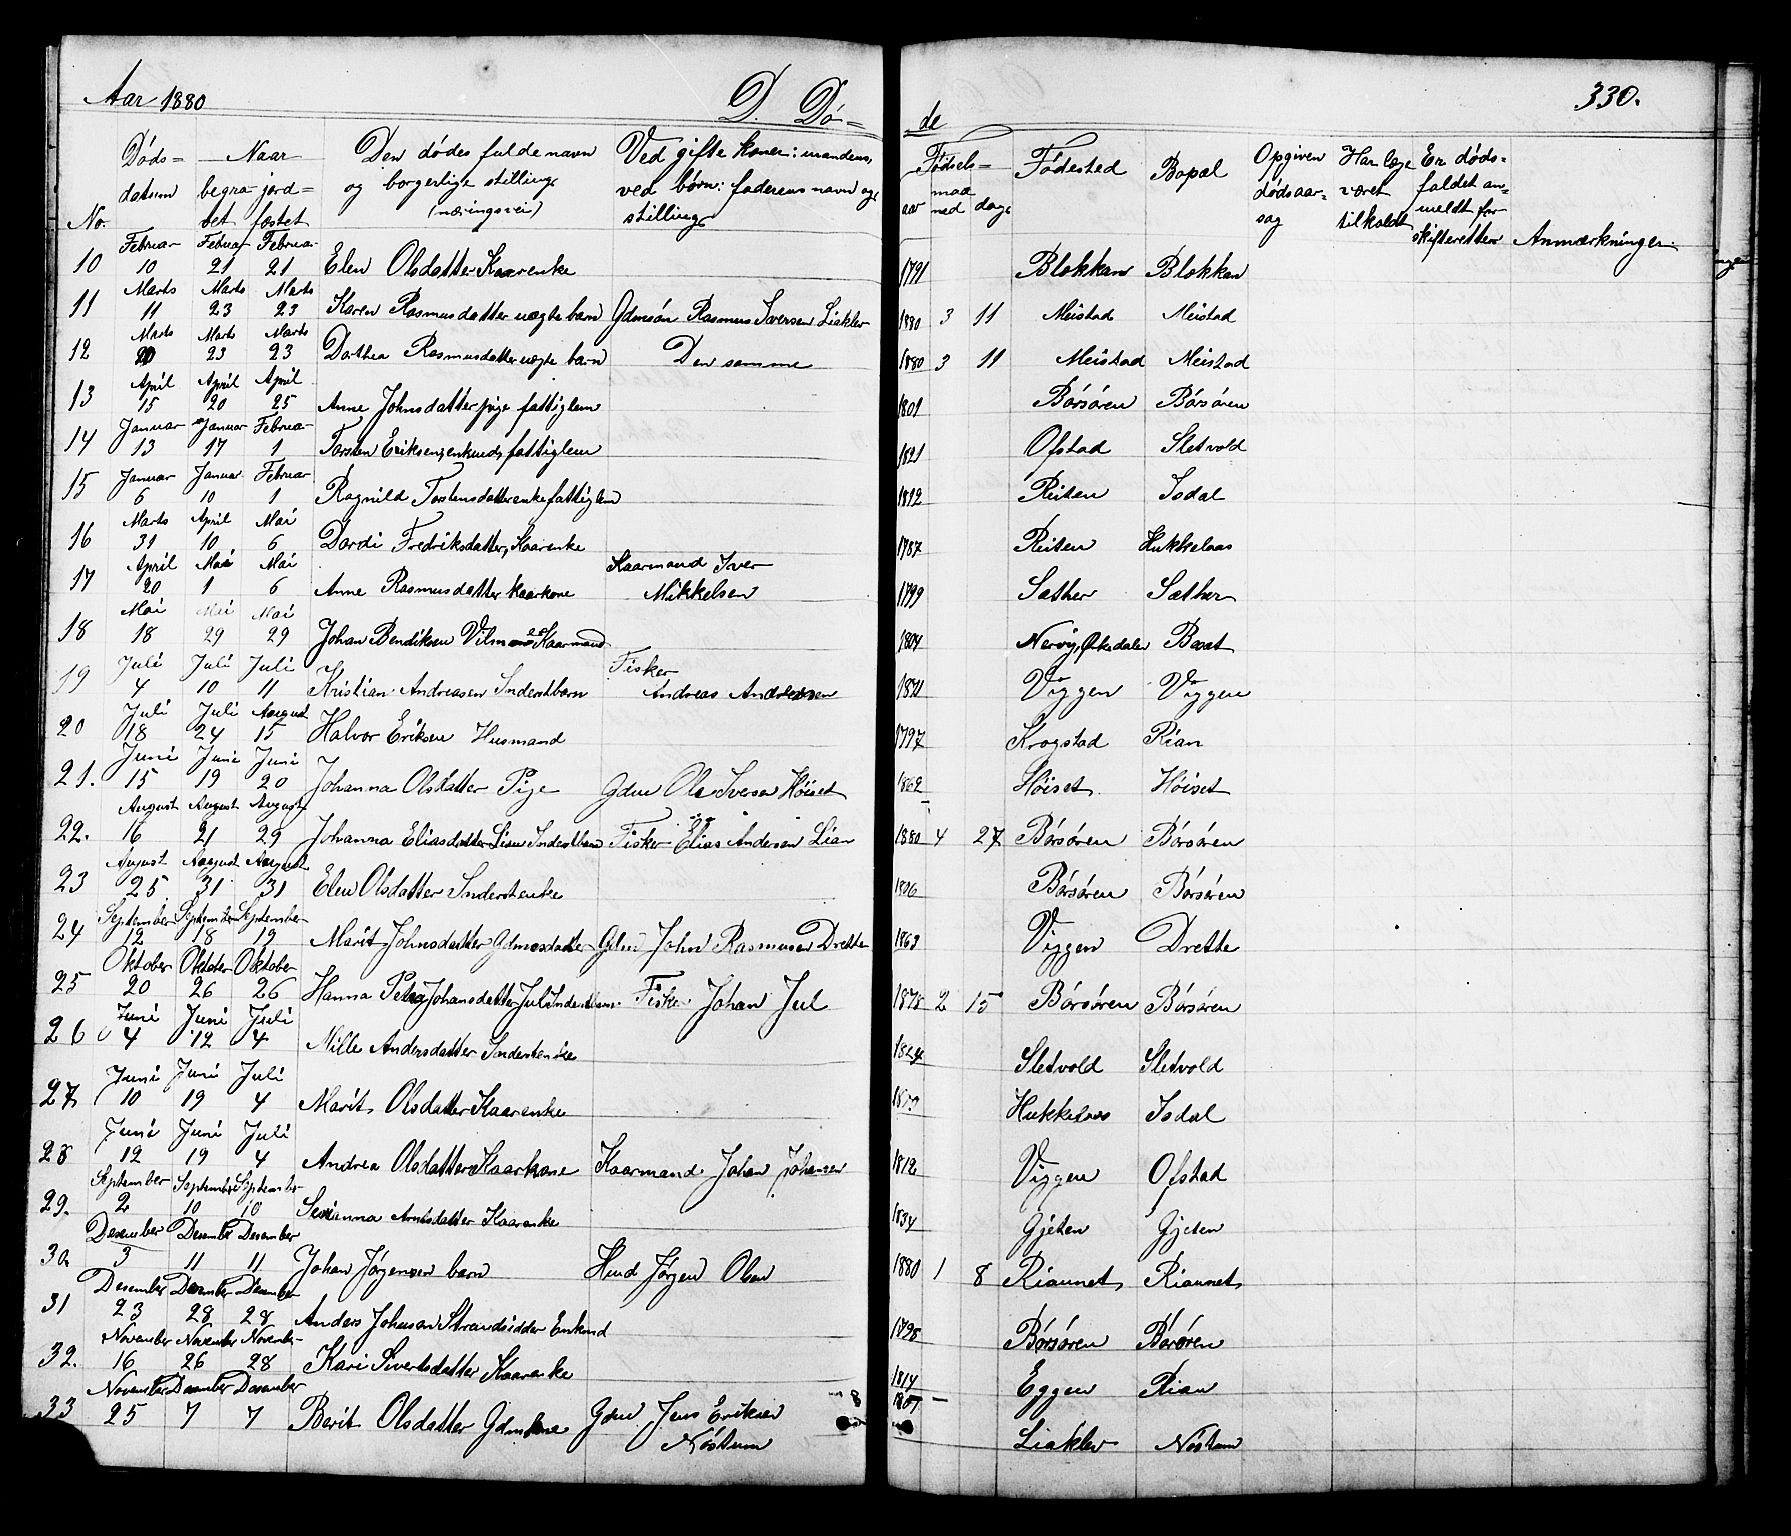 Aar 1880 D. Dö= de 330.
No. Döds= datum Naar begra= tet jord= fæstet Den dödes fulde navn og borgerlige stilling (næringsvei) Ved gifte koner: mandens, ved börn: faderens navn og stilling Födsels= aar maa ned dag Födested Bopæl Opgiven dödsaar= sag Har læge været tilkaldt Er döds= faldet an= meldt for skifteretten Anmærkninger
10 Februar 10 Februar 21 Februar 21 Elen Olsdatter Kaarenke 1791 Blokkan Blokkan
11 Marts 11 Marts 23 Marts 23 Karen Rasmusdatter uægte barn Gdmsön Rasmus Iversen Liaklev 1880 3 11 Meistad Meistad
12 Marts 20 Marts 23 Marts 23 Dorthea Rasmusdatter uægte barn Den samme 1880 3 11 Meistad Meistad
13 April 15 April 20 April 25 Anne Johnsdatter pige fattiglem 1801 Börsören Börsören
14 Januar 13 Januar 17 Februar 1 Torsten Eriksen, enkmd, fattiglem 1821 Ofstad Sletvold
15 Januar 6 Januar 10 Februar 1 Ragnild Torstensdatter enke fattiglem 1812 Reiten Isdal
16 Marts 31 April 10 Mai 6 Dordi Fredriksdatter, Kaarenke 1787 Reiten Hukkelaas
17 April 20 Mai 1 Mai 6 Anne Rasmusdatter kaarkone Kaarmand Iver Mikkelsen 1799 Sæther Sæther
18 Mai 18 Mai 29 Mai 29 Johan Bendiksen Kaarmand 1804 Nervig, Orkedalen
19 Juli 4 Juli 10 Juli 11 Kristian Andreasen Inderstbarn Fisker Andreas Andreasen Viggen Viggen
20 Juli 18 Juli 24 August 15 Halvor Eriksen Husmand 1797 Krogstad Rian
21. Juni 15 Juni 19 Juni 20 Johanna Olsdatter Pige Gdm Ole Iversen Höiset 1862 Höiset Höiset
22. August 16 August 21 August 29 Johanna Eliasdatter Lian Inderstbarn Fisker Elias Andersen Lian 1880 4 27 Börsören Börsören
23 August 25 August 31 August 31 Elen Olsdatter Inderstenke 1806 Börsören Börsören
24 September 12 September 18 September 19 Marit Johnsdatter Gdmsdatter Gdm John Rasmusen Drette 1863 Viggen Drette
25 Oktober 20 Oktober 26 Oktober 26 Hanna Petra Johansdatter Jul Inderstbarn Fisker Johan Jul 1878 2 15 Börsören Börsören
26 Juni 4 Juni 12 Juli 4 Nille Andersdatter Inderstenke 1824 Sletvold Sletvold
27 Juni 10 Juni 19 Juli 4 Marit Olsdatter Kaarenke Hukkelaas Isdal
28 Juni 12 Juni 19 Juli 4 Andrea Olsdatter Kaarkone Kaarmand Johan Johansen 1812 Viggen Ofstad
29. September 2 September 10 September 10 Serianna Arntsdatter Kaarenke 1834 Gjeten Gjeten
30 Desember 3 Desember 11 Desember 11 Johan Jörgensen barn Hmd Jörgen Olsen 1880 1 8 Riaunet Riaunet
31 Desember 23 Desember 28 Desember 28 Anders Johnsen Strandsidder Enkmd 1798 Börsören Börsören
32. November 16 November 26 November 28 Kari Sivertsdatter Kaarenke 1814 Eggen Rian
33 November 25 Desember 7 Desember 7 Berit Olsdatter Gdmkone Gdm Jens Eriksen Nöstum Liaklev Nöstum